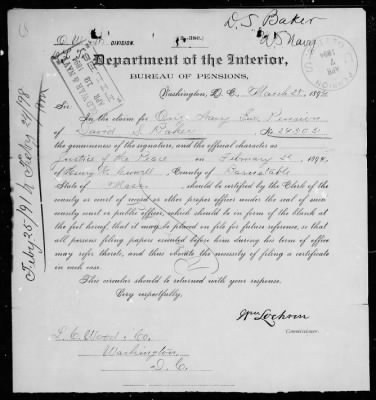 D. S. Baker
U.S. Navy
DIVISION.
Department of the Interior,
BUREAU OF PENSIONS,
Washington, D. C., March 28, 1894
Sir:
In the claim for Orig. Navy Inv. Pension
of David S. Baker, No.
the genuineness of the signature, and the official character as
Justice of the Peace on February 1894,
of Henry County of Barnstable
State of Mass. should be certified by the Clerk of the
county or court of record or other proper officer under the seal of such
county court or public officer, which should be in form of the blank at
the foot hereof, that it may be placed on file for future reference, so that
all persons filing papers executed before him during his term of office
may refer thereto, and thus obviate the necessity of filing a certificate
in each case.
This circular should be returned with your response.
Very respectfully,
Wm Lochren
Commissioner.
Wood & Co.
Washington
D. C.